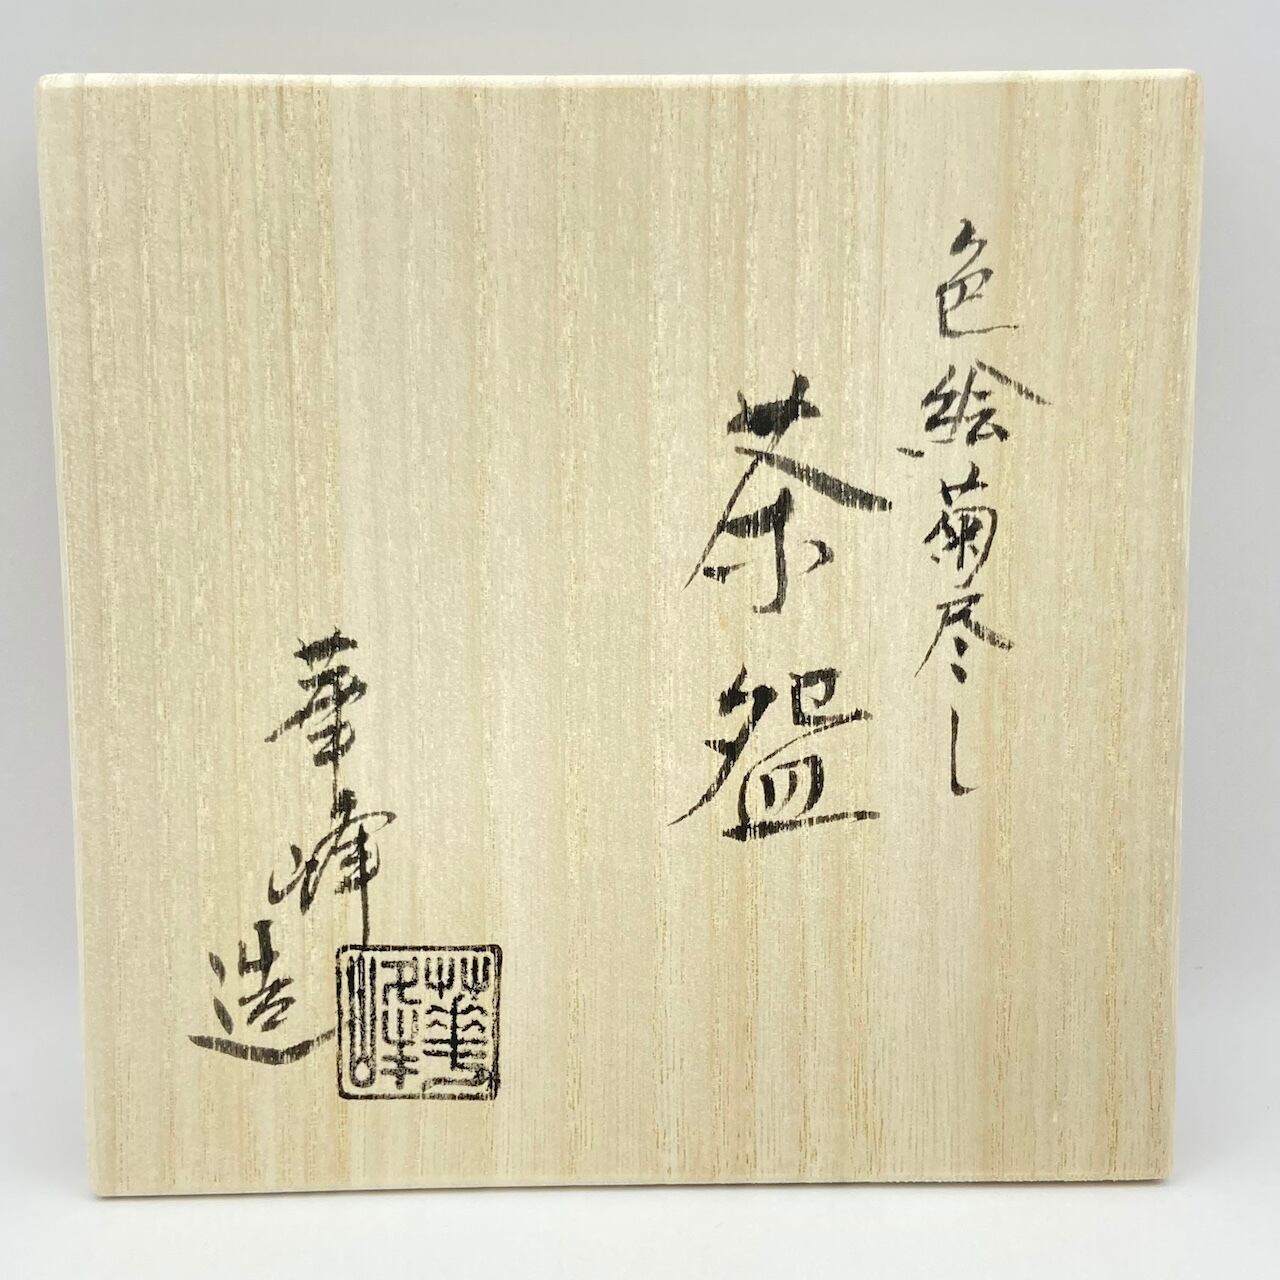 色絵菊尽し
茶盌
華峰
造
華峰